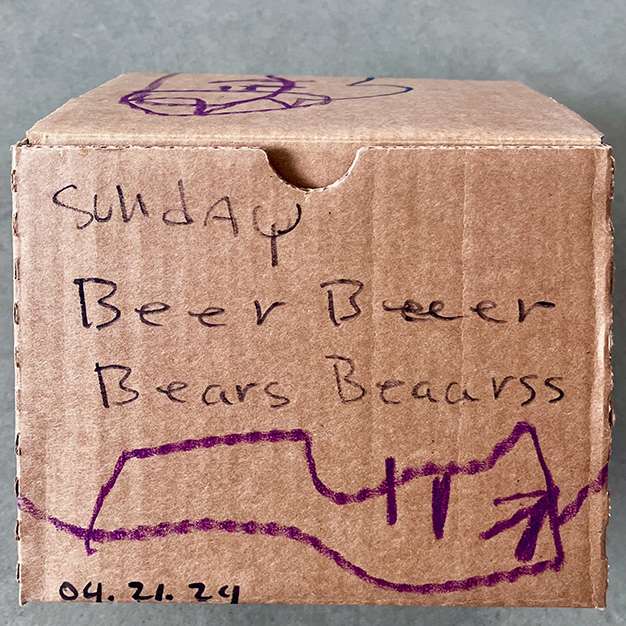 SundAy
Beer Beeer
Bears Beaarss
04.21.24